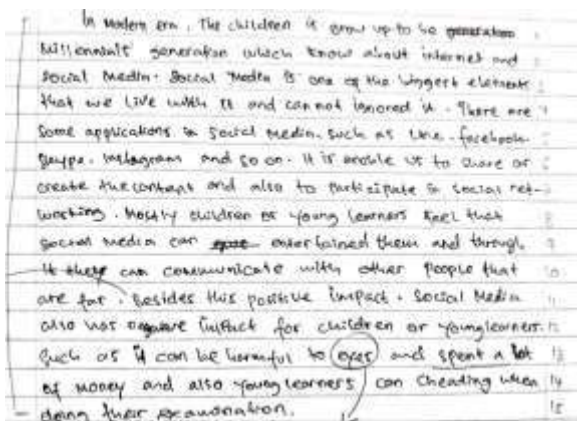 In Modern era, The children is grow up to be generation
Millennials generation which know about internet and
social media. Social Media is one of the biggest elements
that we live with it and cannot ignored it. There are
some applications in social media. such as Line. facebook
skype. instagram and so on. It is enable us to share or
create the content and also to participate in social net-
working. Mostly children or young learners feel that
social media can entertained them and through
it they can communicate with other people that
are far. Besides this positive impact. Social Media
also has negative impact for children or young learners.
Such as it can be harmful to eyes and spent a lot
of money and also young learners can cheating when
doing their examination.